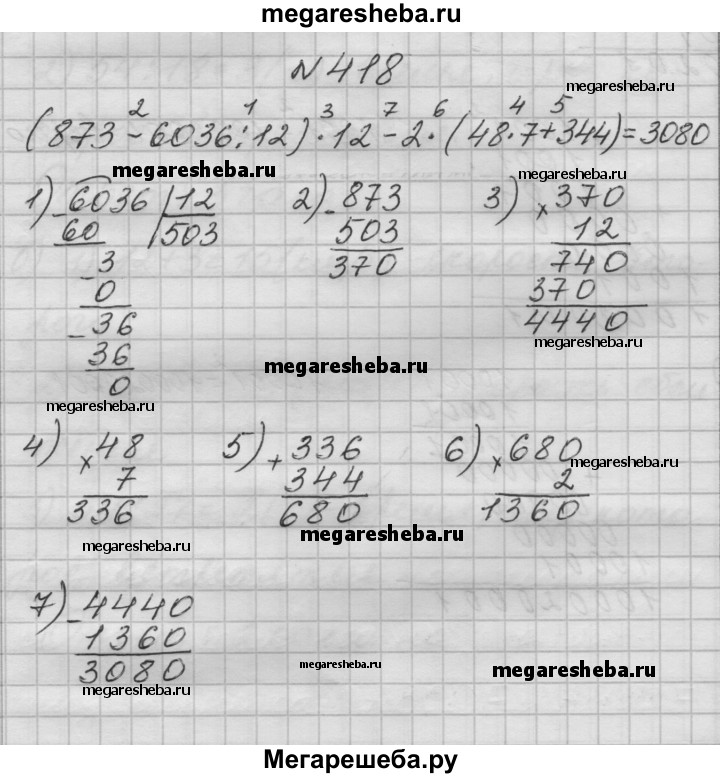 megaresheba.ru
№ 418
megaresheba.ru
2 1 3 7 6 4 5
(873 - 6036 : 12) · 12 - 2 · (48 · 7 + 344) = 3080
megaresheba.ru
1) - 6036 | 12 2) - 873 3) × 370
60 | 503 503 12
- 3 370 740
0 370
- 36 4440
36 megaresheba.ru
megaresheba.ru
0
megaresheba.ru
4) × 48 5) + 336 6) × 680
megaresheba.ru
7 344 2
336 680 1360
megaresheba.ru megaresheba.ru
7) - 4440
1360
3080
megaresheba.ru megaresheba.ru
megaresheba.ru
Мегарешеба.ру